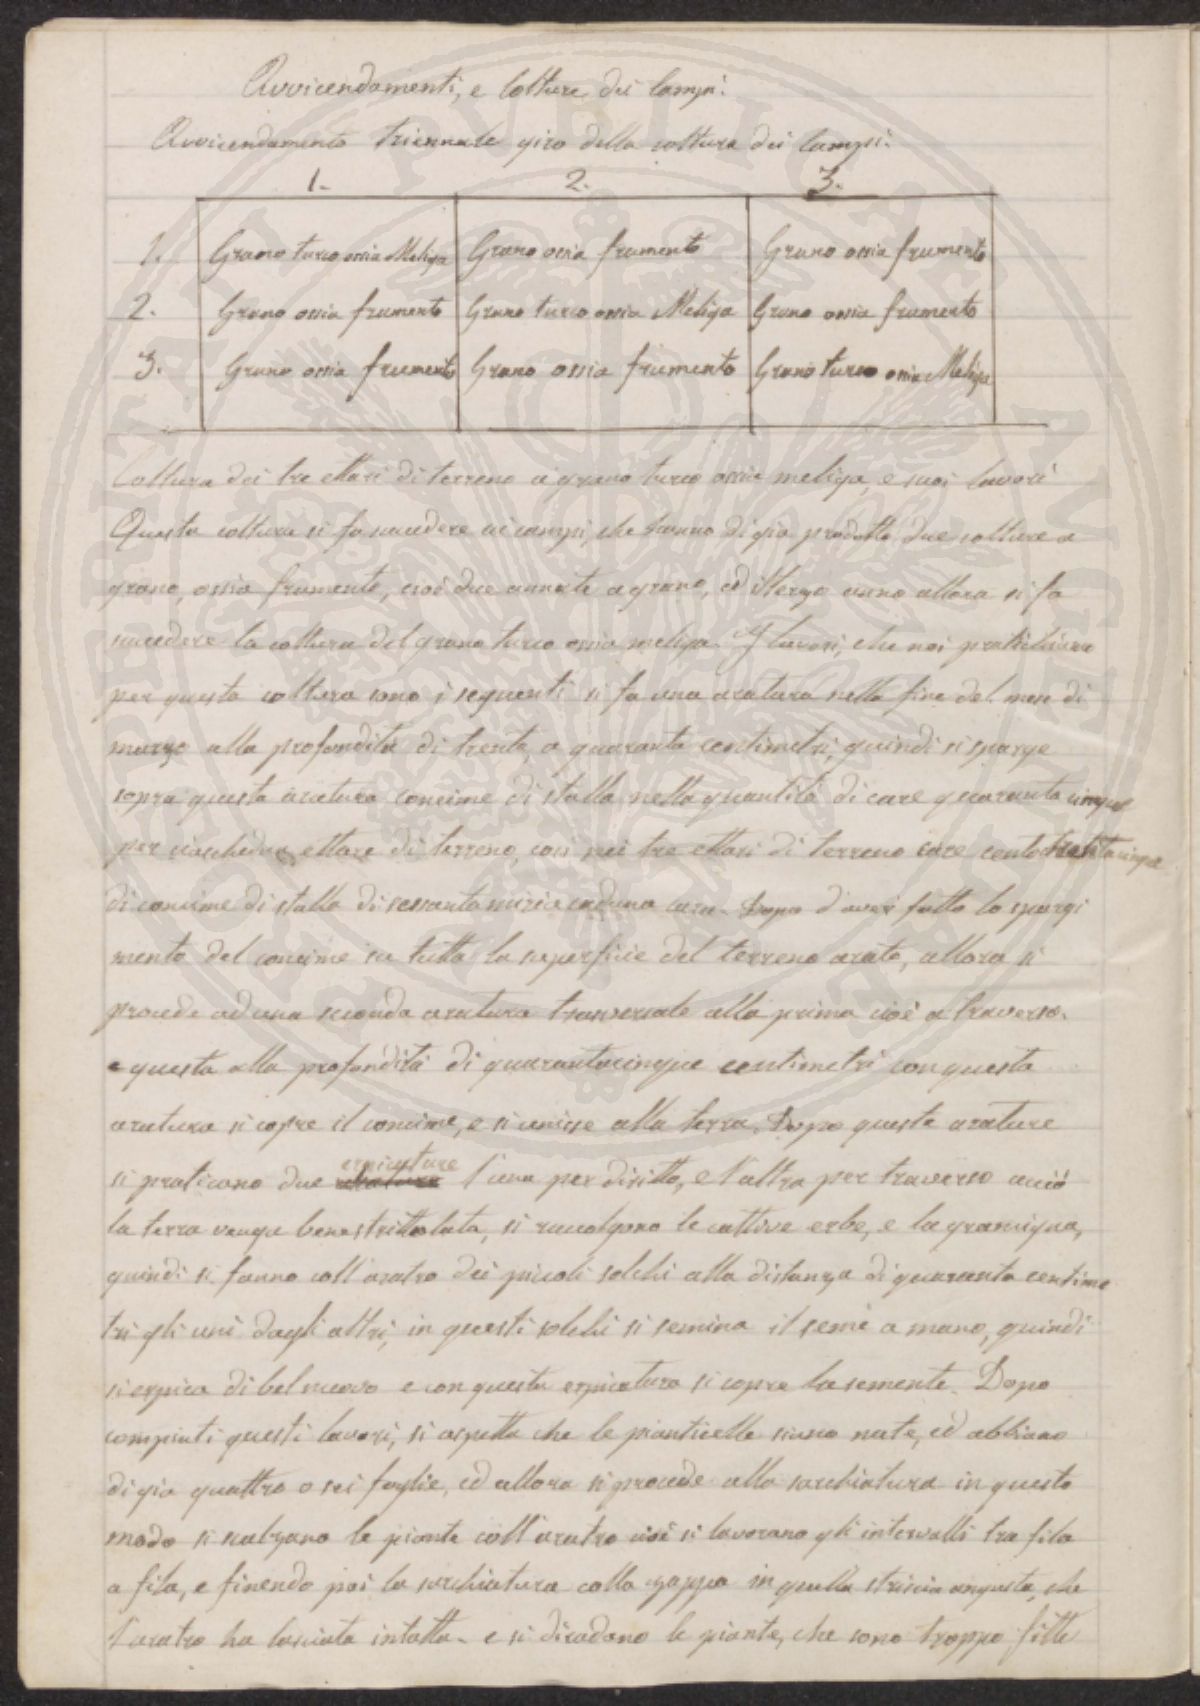 Avvicendamenti, e Colture dei Campi.
Avvicendamento triennale giro della coltura dei Campi.
1. 2. 3.
1. Grano turco ossia Meliga Grano ossia frumento Grano ossia frumento
2. Grano ossia frumento Grano turco ossia Meliga Grano ossia frumento
3. Grano ossia frumento Grano ossia frumento Grano turco ossia Meliga
Coltura dei tre ettari di terreno a grano turco ossia meliga, e suoi lavori
Questa coltura si fa succedere ai campi, che hanno di già prodotto due colture a
grano, ossia frumento, cioè due annate a grano, ed il terzo anno allora si fa
succedere la coltura del grano turco ossia meliga. I lavori, che noi pratichiamo
per questa coltura sono i seguenti si fa una aratura nella fine del mese di
marzo alla profondità di trenta, a quaranta centimetri, quindi si sparge
sopra questa aratura concime di stalla nella quantità di care quaranta cinque
per ciaschedun ettare di terreno, così nei tre ettari di terreno care centotrentacinque
di concime di stalla di sessanta miria caduna cara. Dopo d'aver fatto lo spargi
mento del concime su tutta la superficie del terreno arato, allora si
procede ad una seconda aratura trasversale alla prima cioè a traverso.
e questa alla profondità di quarantacinque centimetri con questa
aratura si copre il concime, e si unisce alla terra. Dopo queste arature
si praticano due erpicature l'una per diritto, e l'altra per traverso acciò
la terra venga bene strittolata, si raccolgono le cattive erbe, e la gramigna,
quindi si fanno coll'aratro dei piccoli solchi alla distanza di quaranta centime
tri gli uni dagli altri, in questi solchi si semina il seme a mano, quindi
si erpica di bel nuovo e con questa erpicatura si copre la semente. Dopo
compiuti questi lavori, si aspetta che le pianticelle siano nate, ed abbiano
di già quattro o sei foglie, ed allora si procede alla sarchiatura in questo
modo si scalzano le piante coll'aratro cioè si lavorano gli intervalli tra fila
a fila, e finendo poi la sarchiatura colla zappa in quella striscia angusta, che
l'aratro ha lasciata intatta. e si diradano le piante, che sono troppo fitte